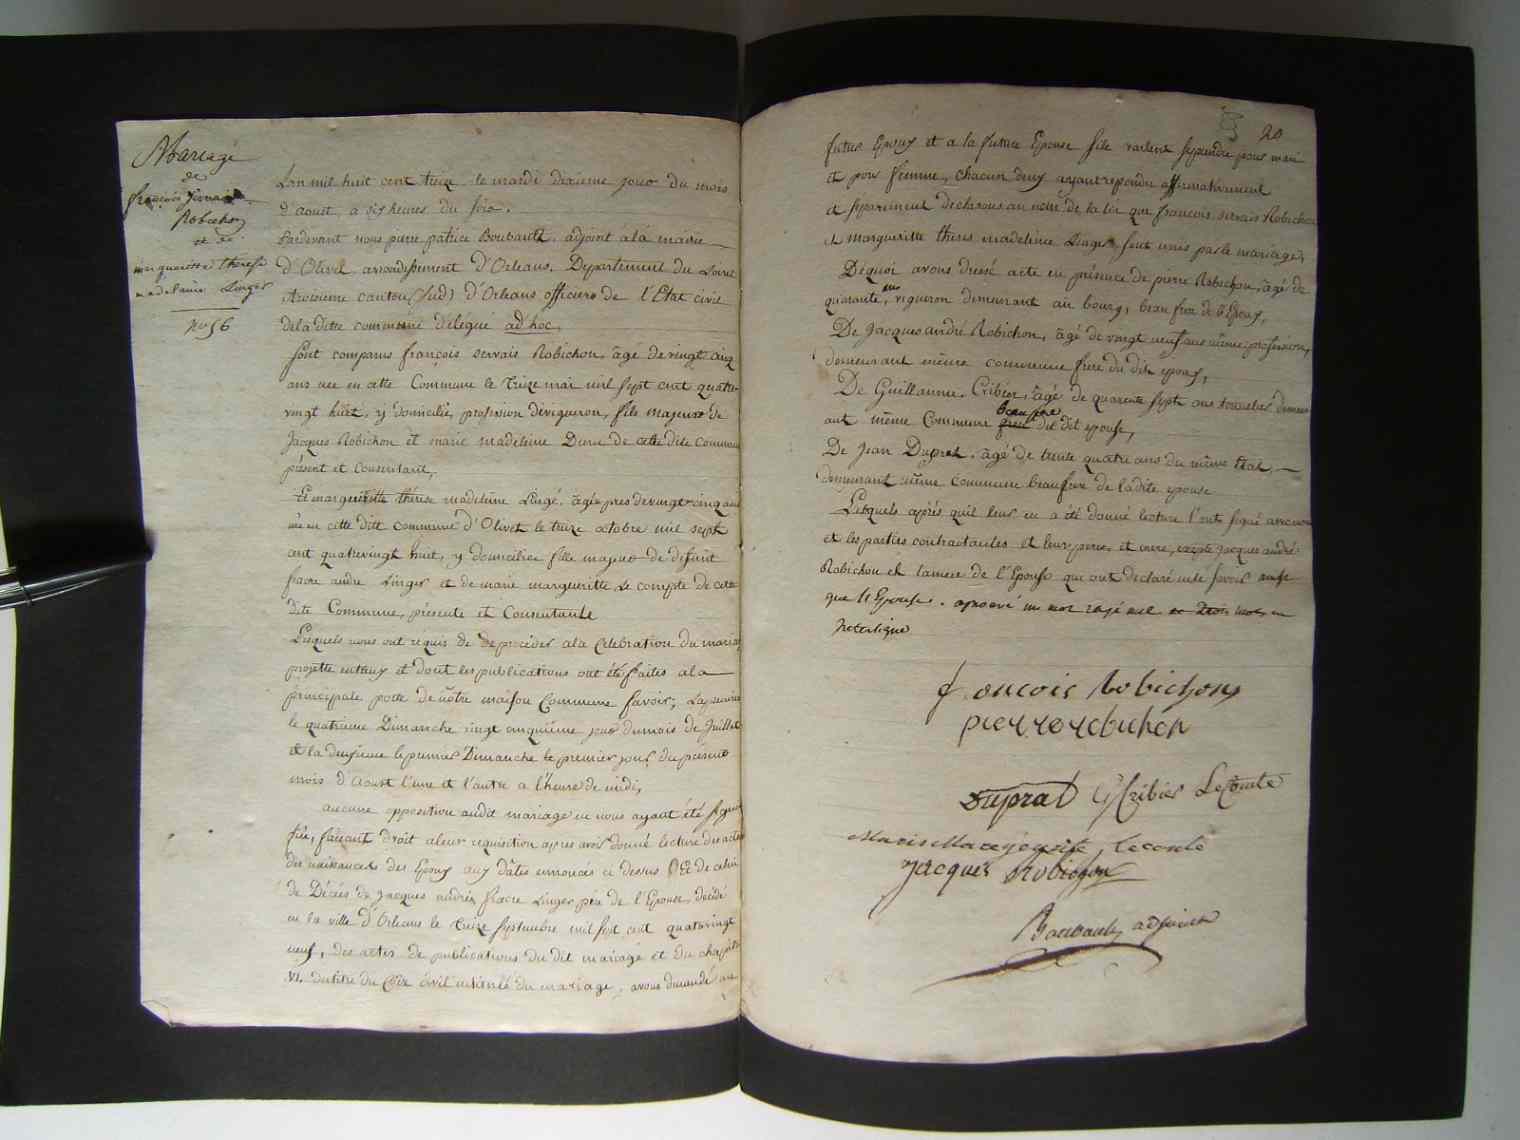 Mariage
de
françois servais
Robichon
et de
marguerite therese
madelaine Linger
No 56
Lan mil huit cent treize le mardi dixieme jour du mois
d'aoust, a six heures du soir.
Pardevant nous pierre patrice Boutault, adjoint á lá mairie
d'Olivet, arrondissement d'Orleans, Departement du Loiret
troisieme canton (Sud) d'Orleans officiers de l'Etat civil
de la ditte commune délégué ad hoc,
Sont comparus françois servais Robichon, âgé de vingt cinq
ans née en cette Commune le treize mai mil sept cent quatre-
vingt huit, y domicilié, profession de vigneron, fils majeur de
Jacques Robichon et marie madeleine Durie de cette dite commune
présent et Consentant,
Et margueritte thérèse madeleine Lingé, âgée pres de vingt-cinq ans
née en cette ditte commune d'Olivet le treize octobre mil sept
cent quatrevingt huit, y domiciliee fille majeur de défunt
fiacre andre Linger et de marie margueritte Le compte de cette
dite Commune, présente et Consentante
Lesquels nous ont requis de procéder a la Celebration du mariage
projetté entreux et dont les publications ont été faites a la
principale porte de nôtre maison Commune savoir; La premiere
le quatrieme Dimanche vingt cinquieme jour du mois de Juillet
et la deuxieme le premier Dimanche le premier jour du présent
mois d'Aoust l'une et l'autre a l'heure de midi,
aucune opposition audit mariage ne nous ayant été signi
fiée, faisant droit a leur requisition apres avoir donné lecture des actes
de naissances des Epoux aux dâtes énnoncés ci dessus Et de celui
de Décés de Jacques andré fiacre Linger père de l'Epouse, décédé
en la ville d'Orleans le treize Septembre mil sept cent quatrevingt
neuf, des actes de publications du dit mariage et du chapitre
VI. du titre du Code Civil intitulé du mariage, avons demandé au
20
futur Epoux et a la future Epouse s'ils veulent se prendre pour mari
et pour femme, chacun d'eux ayant repondu affirmativement
et séparement declarons au nom de la loi que françois servais Robichon
et margueritte theres madeleine Linger sont unis par le mariage,
De quoi avons dressé acte en présence de pierre Robichon, âgé de
quarante ans, vigneron demeurant au bourg, beau frere de l'Epoux,
De Jacques andré Robichon, âgé de vingt neuf ans même profession,
demeurant même commune frere du dit epoux,
De Guillaume Cribier, âgé de quarente sept ans tonnelier demeur
ant même Commune beau pere de dit epouse,
De Jean Duprat, âgé de trente quatre ans du même état,
demeurant même commune beaufrere de ladite epouse
Lesquels après quil leur en a été donné lecture l'ont signé avec nous
et les parties contractantes et leur peres et mere, excepté jacques andré
Robichon et la mere de l'Epoux qui ont declaré ne le savoir ainsi
que l'Epouse. aprouvé un mot rayé nul en
Interligne
francois Robichons
pierre robichon
Duprat G Cribier Le Comte
Marie Margeurite Leconte
Jacques Robichon
Boutault adjoint